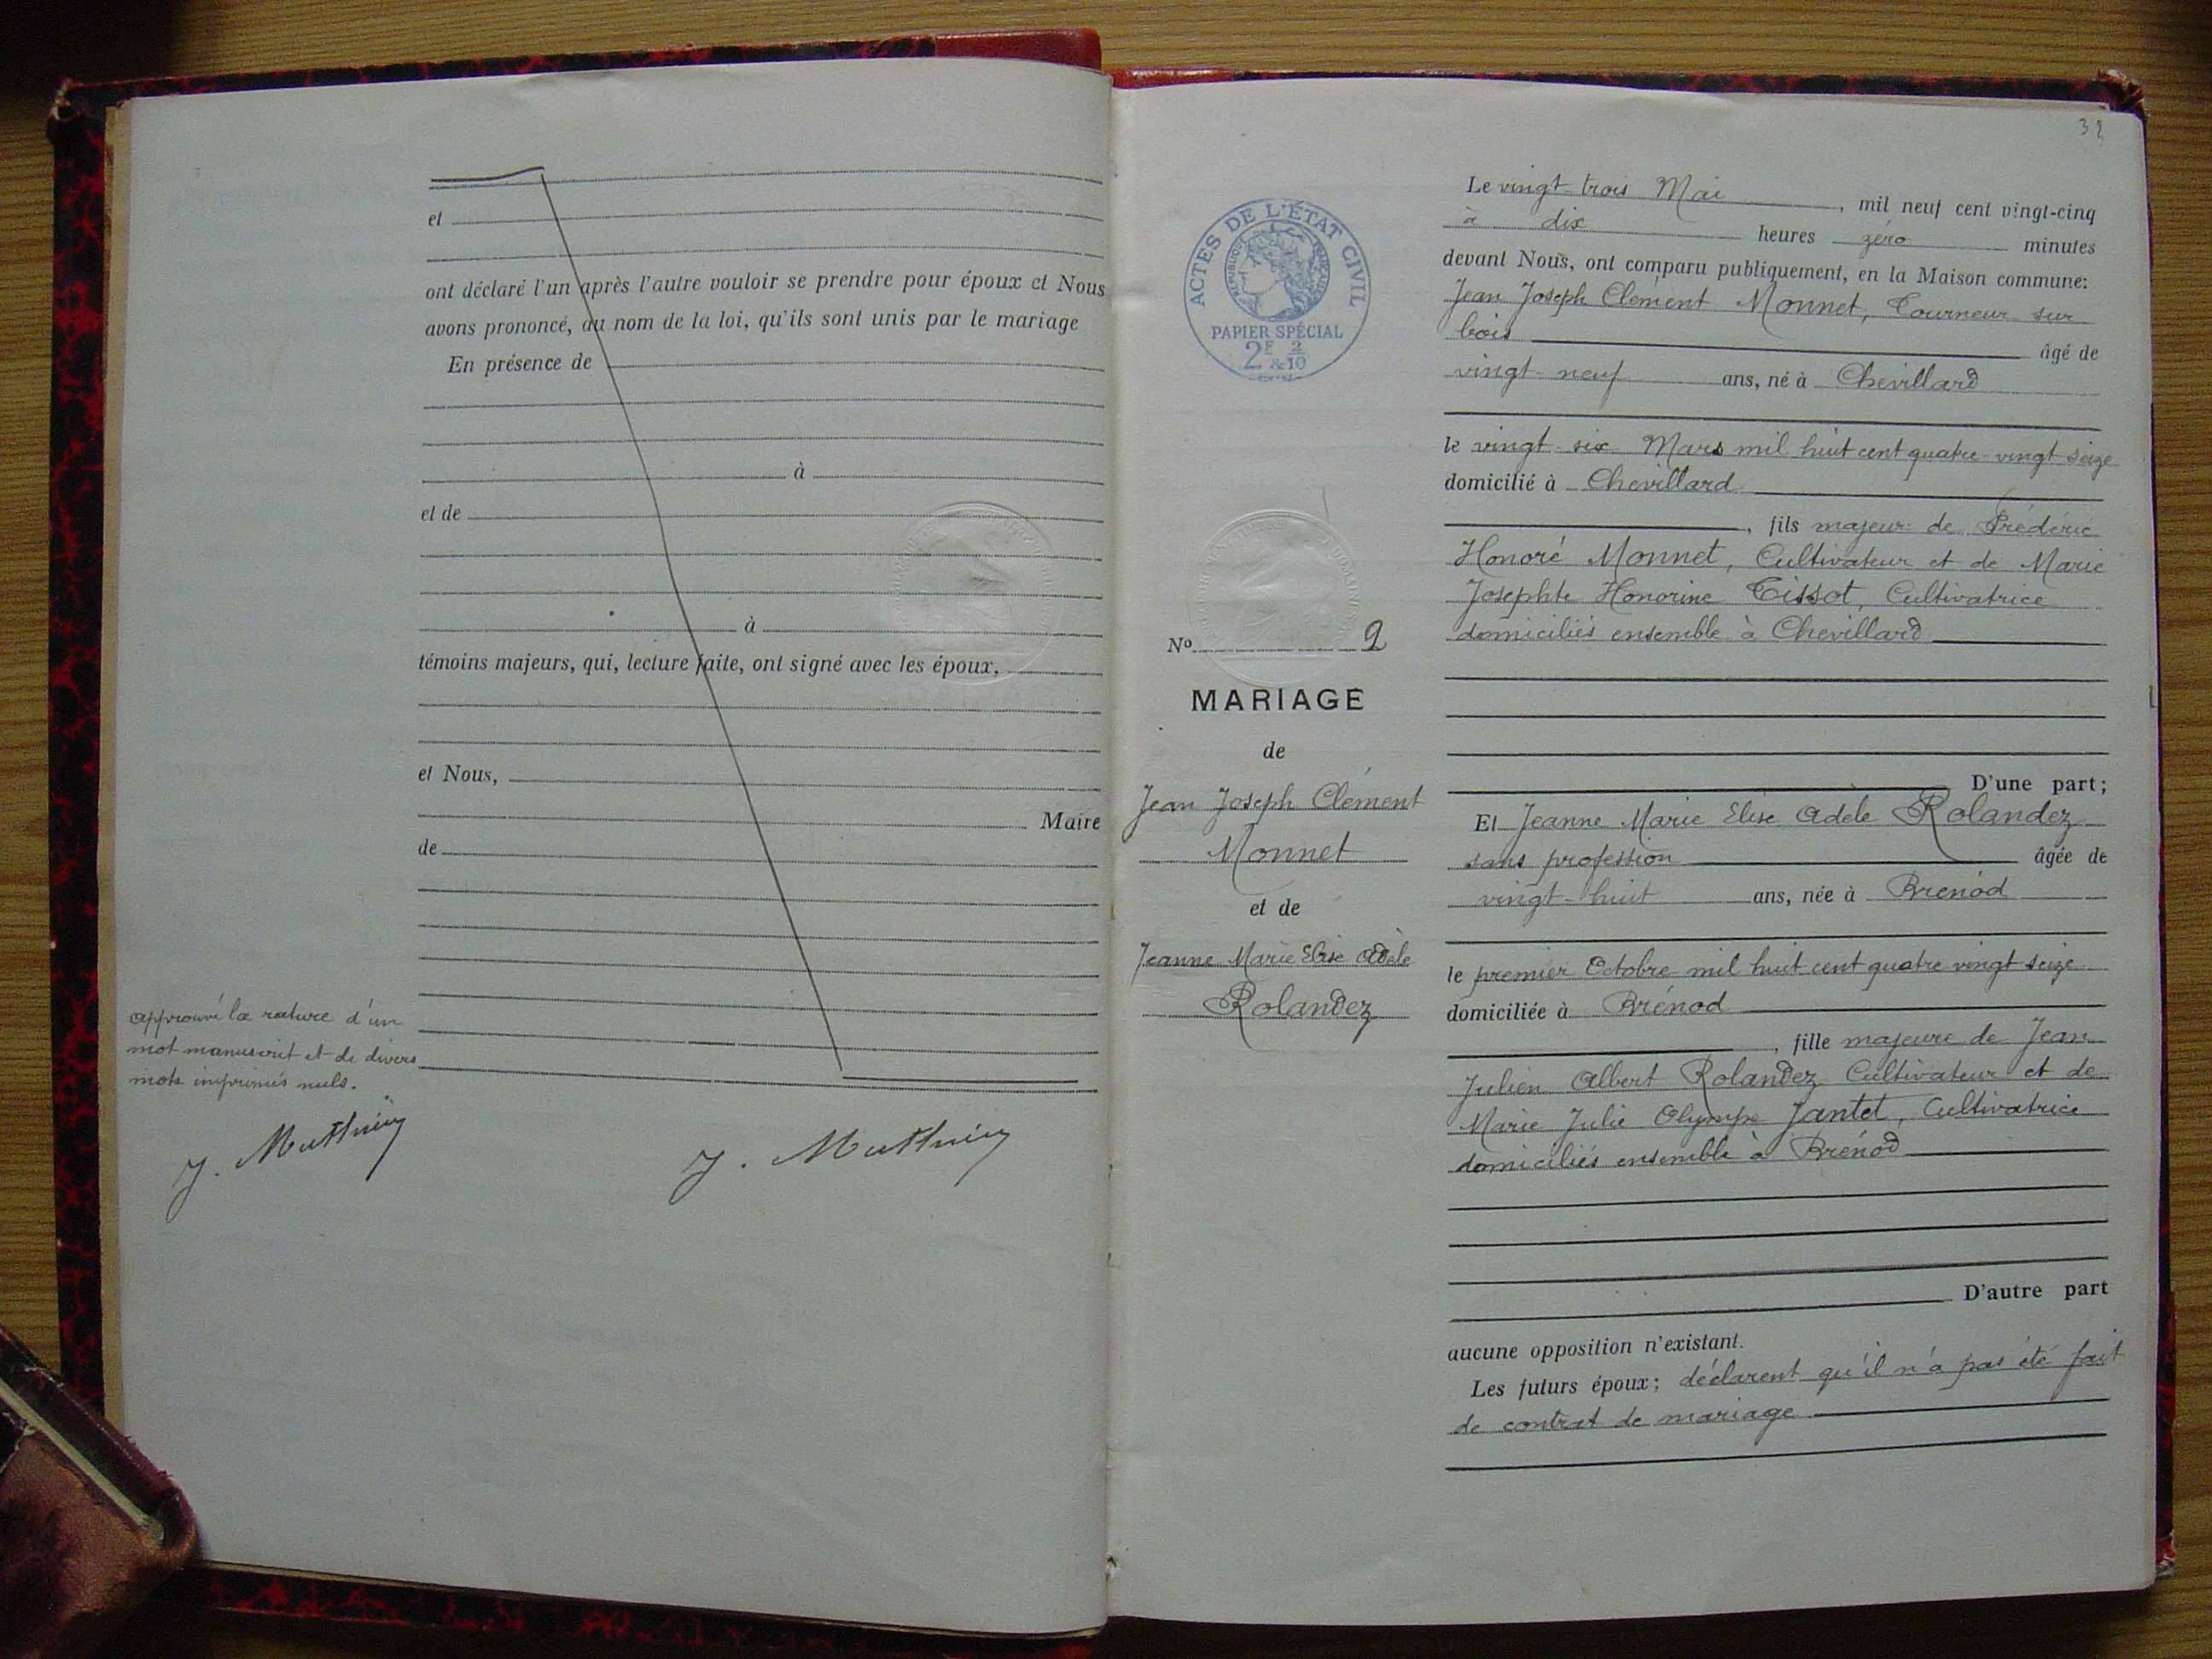 et
ont déclaré l'un après l'autre vouloir se prendre pour époux et Nous
avons prononcé, au nom de la loi, qu'ils sont unis par le mariage
En présence de
à
et de
à
témoins majeurs, qui, lecture faite, ont signé avec les époux,
et Nous,
Maire
de
approuvé la rature d'un
mot manuscrit et de divers
mots imprimés nuls.
ACTES DE L'ÉTAT CIVIL
PAPIER SPÉCIAL
2F & 2/10
No 2
MARIAGE
de
Jean Joseph Clément
Monnet
et de
Jeanne Marie Elise Adèle
Rolandez
Le vingt-trois Mai, mil neuf cent vingt-cinq
à dix heures zéro minutes
devant Nous, ont comparu publiquement, en la Maison commune:
Jean Joseph Clément Monnet, Tourneur sur
bois âgé de
vingt-neuf ans, né à Chevillard
le vingt-six Mars mil huit cent quatre-vingt seize
domicilié à Chevillard
, fils majeur de Frédéric
Honoré Monnet, Cultivateur et de Marie
Josephte Honorine Tissot, Cultivatrice
domiciliés ensemble à Chevillard
D'une part;
Et Jeanne Marie Elise Adèle Rolandez
sans profession âgée de
vingt-huit ans, née à Brénod
le premier Octobre mil huit cent quatre vingt seize
domiciliée à Brénod
, fille majeure de Jean
Julien Albert Rolandez Cultivateur et de
Marie Julie Olympe Jantet, Cultivatrice
domiciliés ensemble à Brénod
D'autre part
aucune opposition n'existant.
Les futurs époux; déclarent qu'il n'a pas été fait
de contrat de mariage